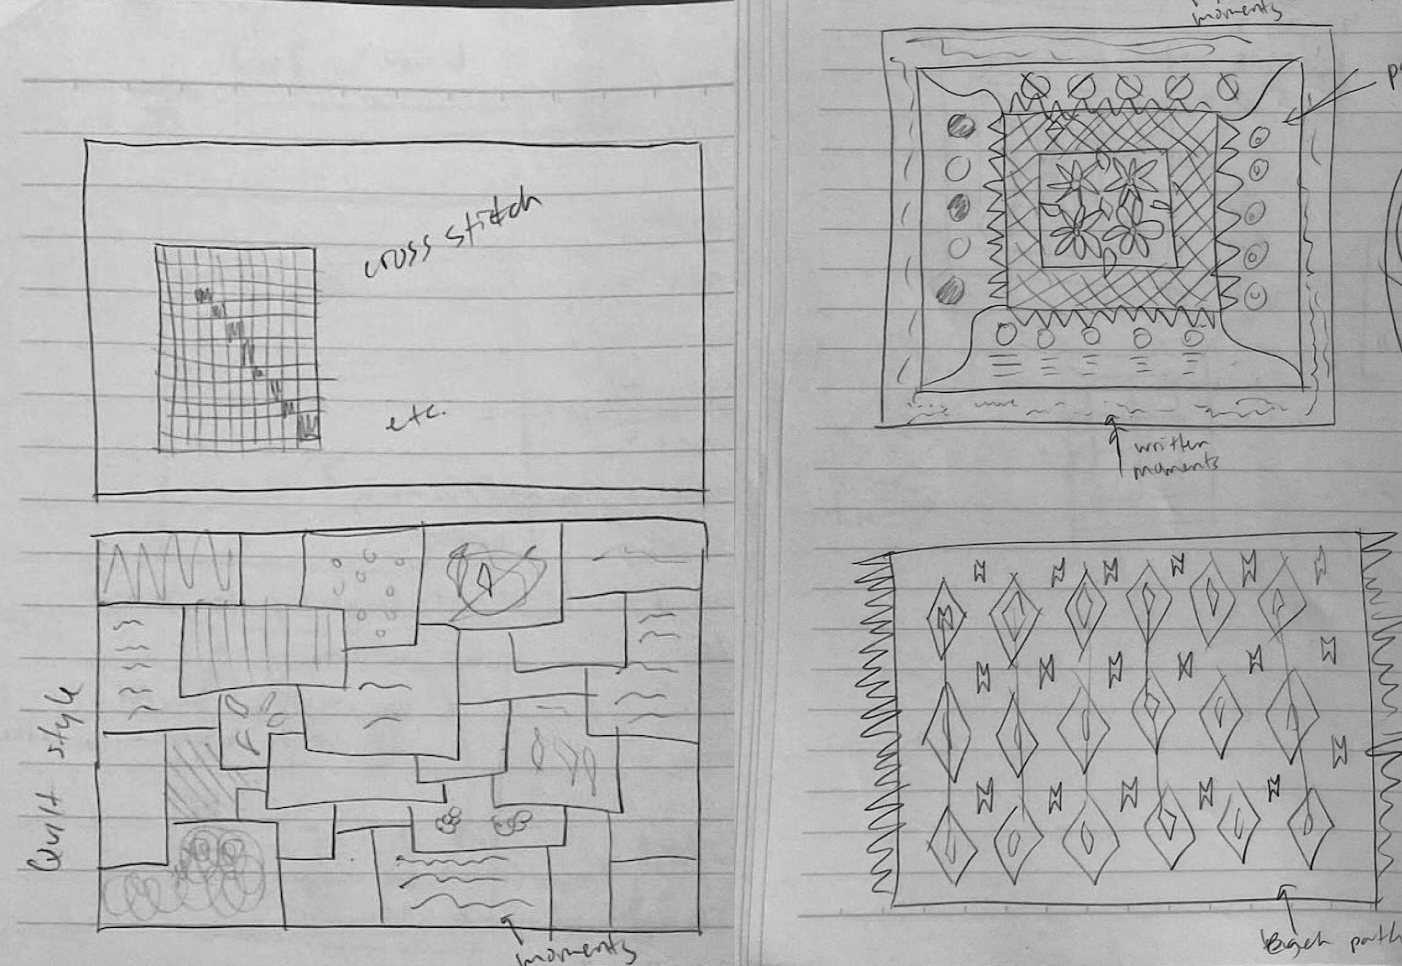 cross stitch
etc.
Quilt style
moments
moments
written
moments